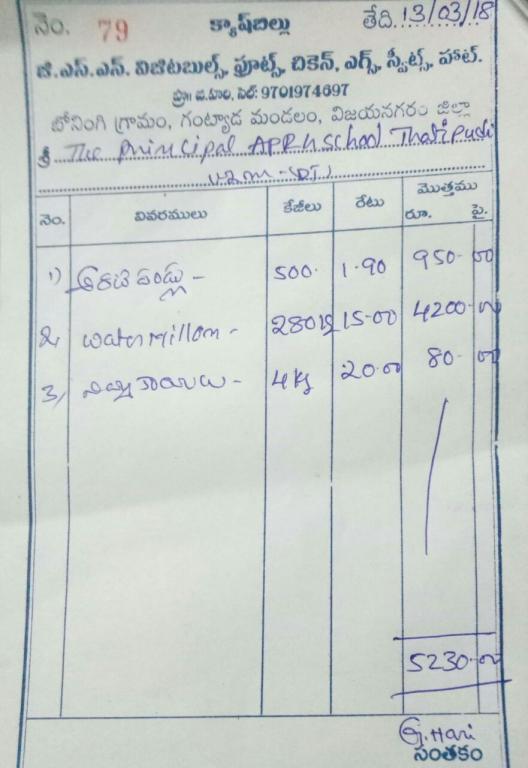 నెం. 79 క్యాష్‌బిల్లు తేది. 13/03/18
జి.ఎస్.ఎస్. విజిటబుల్స్, ఫ్రూట్స్, చికెన్, ఎగ్స్, స్వీట్స్, హాట్.
ప్రొ॥ జి.హరి, సెల్: 9701974697
బోనంగి గ్రామం, గంట్యాడ మండలం, విజయనగరం జిల్లా
శ్రీ The principal APR H School Thatipudi
V.Z.M-(DT)
నెం. వివరములు కేజీలు రేటు మొత్తము
రూ. పై.
1) అరటి పండ్లు - 500. 1.90 950-00
2, water Millom - 280 kg 15-00 4200-00
3, నిమ్మకాయలు - 4 kg 20.00 80-00
5230-00
G.Hari
సంతకం